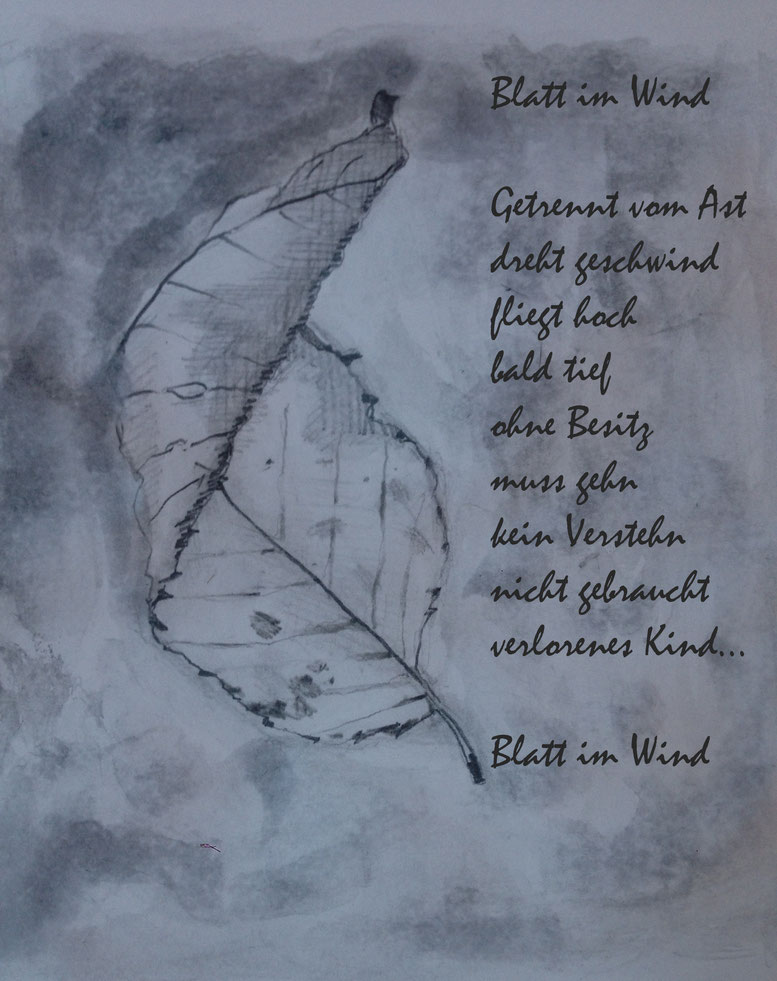 Blatt im Wind
Getrennt vom Ast
dreht geschwind
fliegt hoch
bald tief
ohne Besitz
muss gehn
kein Verstehn
nicht gebraucht
verlorenes Kind...
Blatt im Wind